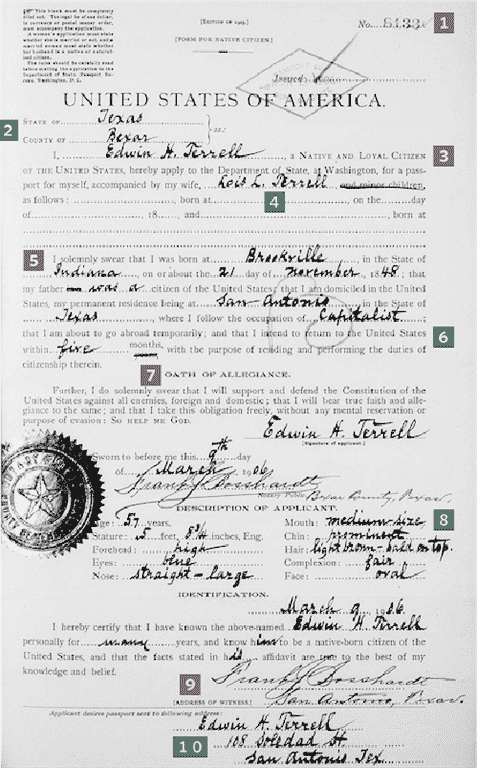 ☞ This blank must be completely
filled out. The legal fee of one dollar,
in currency or postal money order,
must accompany the application.
A woman's application must state
whether she is married or not, and a
married woman must state whether
her husband is a native or natural-
ized citizen.
The rules should be carefully read
before mailing the application to the
Department of State, Passport Bu-
reau, Washington, D. C.
[EDITION OF 1905.]
[FORM FOR NATIVE CITIZEN.]
No.
1
Issued
UNITED STATES OF AMERICA.
2
STATE OF Texas
COUNTY OF Bexar } ss:
3
I, Edwin H. Terrell, a NATIVE AND LOYAL CITIZEN
OF THE UNITED STATES, hereby apply to the Department of State, at Washington, for a pass-
port for myself, accompanied by my wife, Lois L. Terrell and minor children,
as follows: , born at , on the day
4
of , 18 , and , born at
5
I solemnly swear that I was born at Brookville, in the State of
Indiana, on or about the 21 day of November, 1848; that
my father was a citizen of the United States; that I am domiciled in the United
States, my permanent residence being at San Antonio, in the State of
Texas, where I follow the occupation of Capitalist;
that I am about to go abroad temporarily; and that I intend to return to the United States
6
within five months, with the purpose of residing and performing the duties of
citizenship therein.
7
OATH OF ALLEGIANCE.
Further, I do solemnly swear that I will support and defend the Constitution of the
United States against all enemies, foreign and domestic; that I will bear true faith and alle-
giance to the same; and that I take this obligation freely, without any mental reservation or
purpose of evasion: SO HELP ME GOD.
Edwin H. Terrell
[Signature of applicant.]
Sworn to before me this 9th day
of March, 1906
Frank J. Bosshardt
Notary Public, Bexar County, Texas.
DESCRIPTION OF APPLICANT.
8
Age: 57 years. Mouth: medium-size
Stature: 5 feet, inches, Eng. Chin: prominent
Forehead: high Hair: light brown - bald on top.
Eyes: blue Complexion: fair
Nose: straight - large Face: oval
IDENTIFICATION.
March 9, 1906
I hereby certify that I have known the above-named Edwin H. Terrell
personally for many years, and know him to be a native-born citizen of the
United States, and that the facts stated in his affidavit are true to the best of my
knowledge and belief.
9
Frank J. Bosshardt
[ADDRESS OF WITNESS.] San Antonio, Texas.
Applicant desires passport sent to following address:
Edwin H. Terrell
10
108 Soledad St.
San Antonio Tex